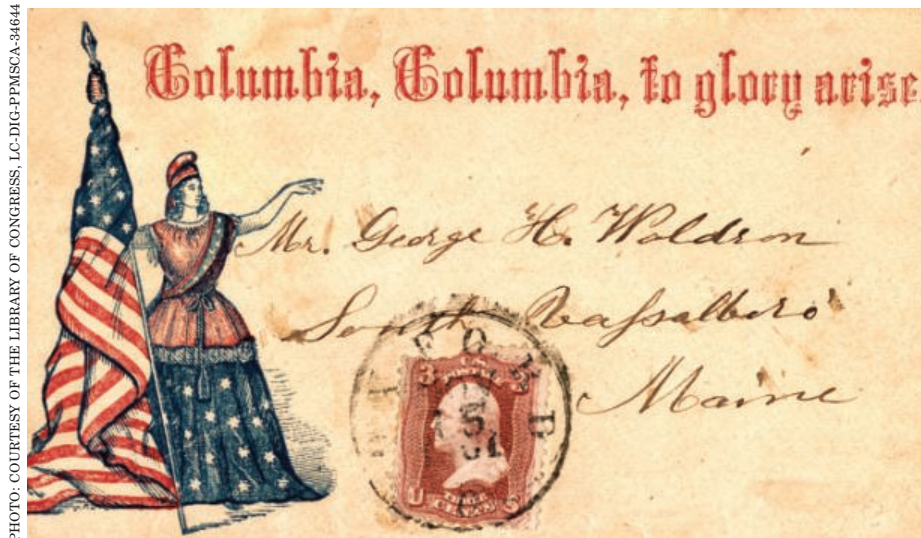 PHOTO: COURTESY OF THE LIBRARY OF CONGRESS, LC-DIG-PPMSCA-34644
Columbia, Columbia, to glory arise
Mr. George H. Woldron
South Vassalboro'
Maine
3 3
U S
THREE
CENTS